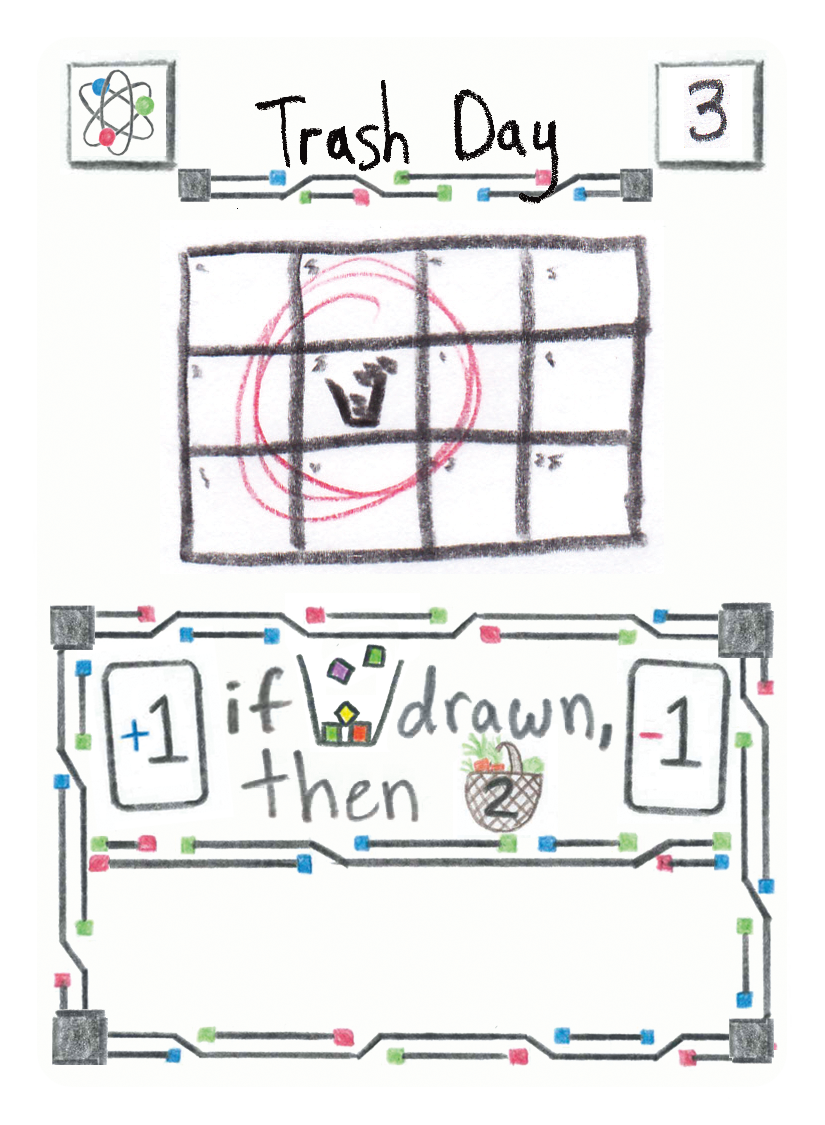 Trash Day
3
+1 if drawn, -1
then 2